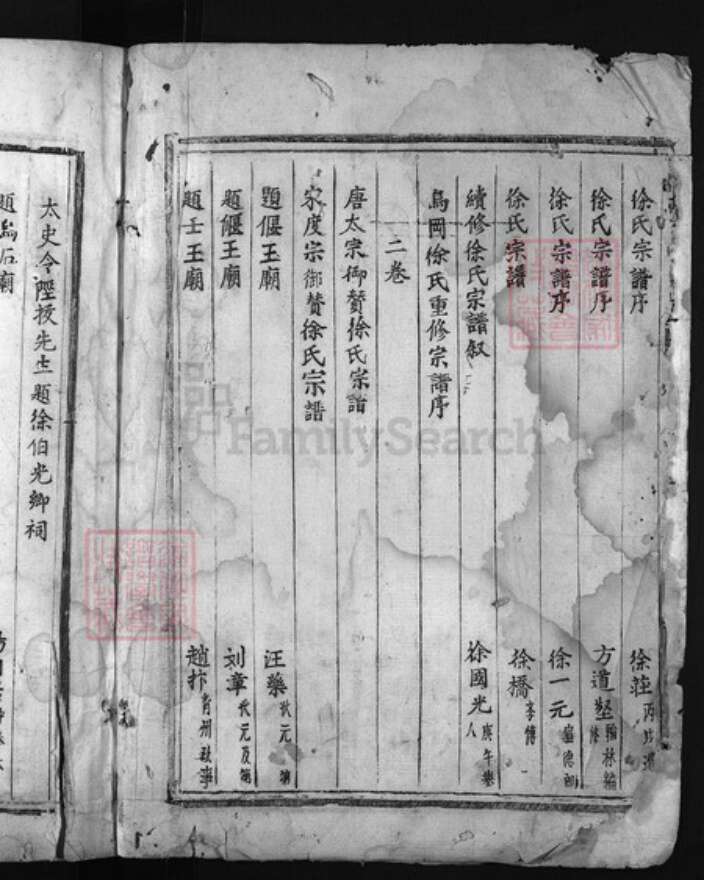 徐氏宗譜序 徐莊
徐氏宗譜序 方道堅 翰林編修
徐氏宗譜序 徐一元 宣德郎
徐氏宗譜 徐橋
續修徐氏宗譜叙 徐國光 庚午舉人
烏岡徐氏重修宗譜序
二卷
唐太宗御贊徐氏宗譜
宋度宗御贊徐氏宗譜
題偃王廟 汪藥 狀元
題偃王廟 刘章 狀元及第
題王廟 趙抃 青州政事
太史令 先生題徐伯光卿祠
題 石廟
FamilySearch